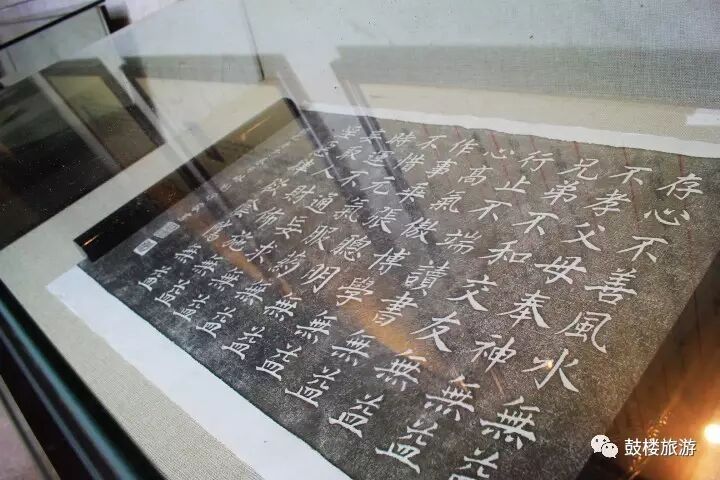 存心不善風水無益
不孝父母奉神無益
兄弟不和交友無益
行止不端讀書無益
心高氣傲博學無益
作事乖張聰明無益
不惜元氣服藥無益
時運不通妄求無益
人財無益
無益
鼓楼旅游